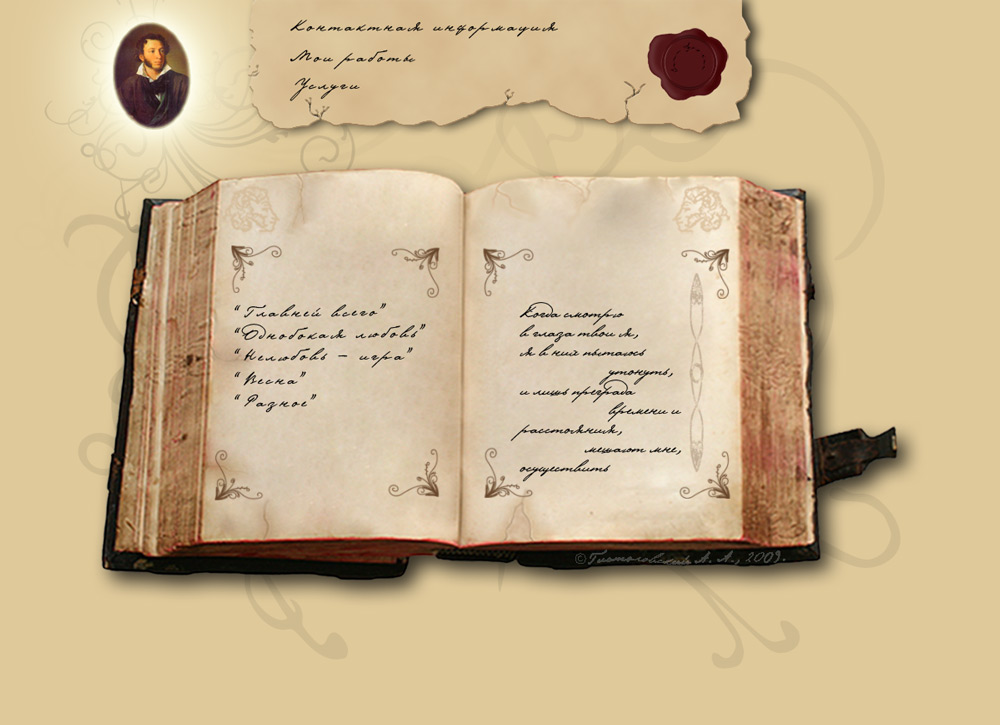 Контактная информация
Мои работы
Услуги
“Главней всего”
“Однобокая любовь”
“Нелюбовь – игра”
“Весна”
“Разное”
Когда смотрю
в глаза твои я,
я в них пытаюсь
утонуть,
и лишь преграда
времени и
расстояния,
мешают мне,
осуществить
© А. А., 2009.